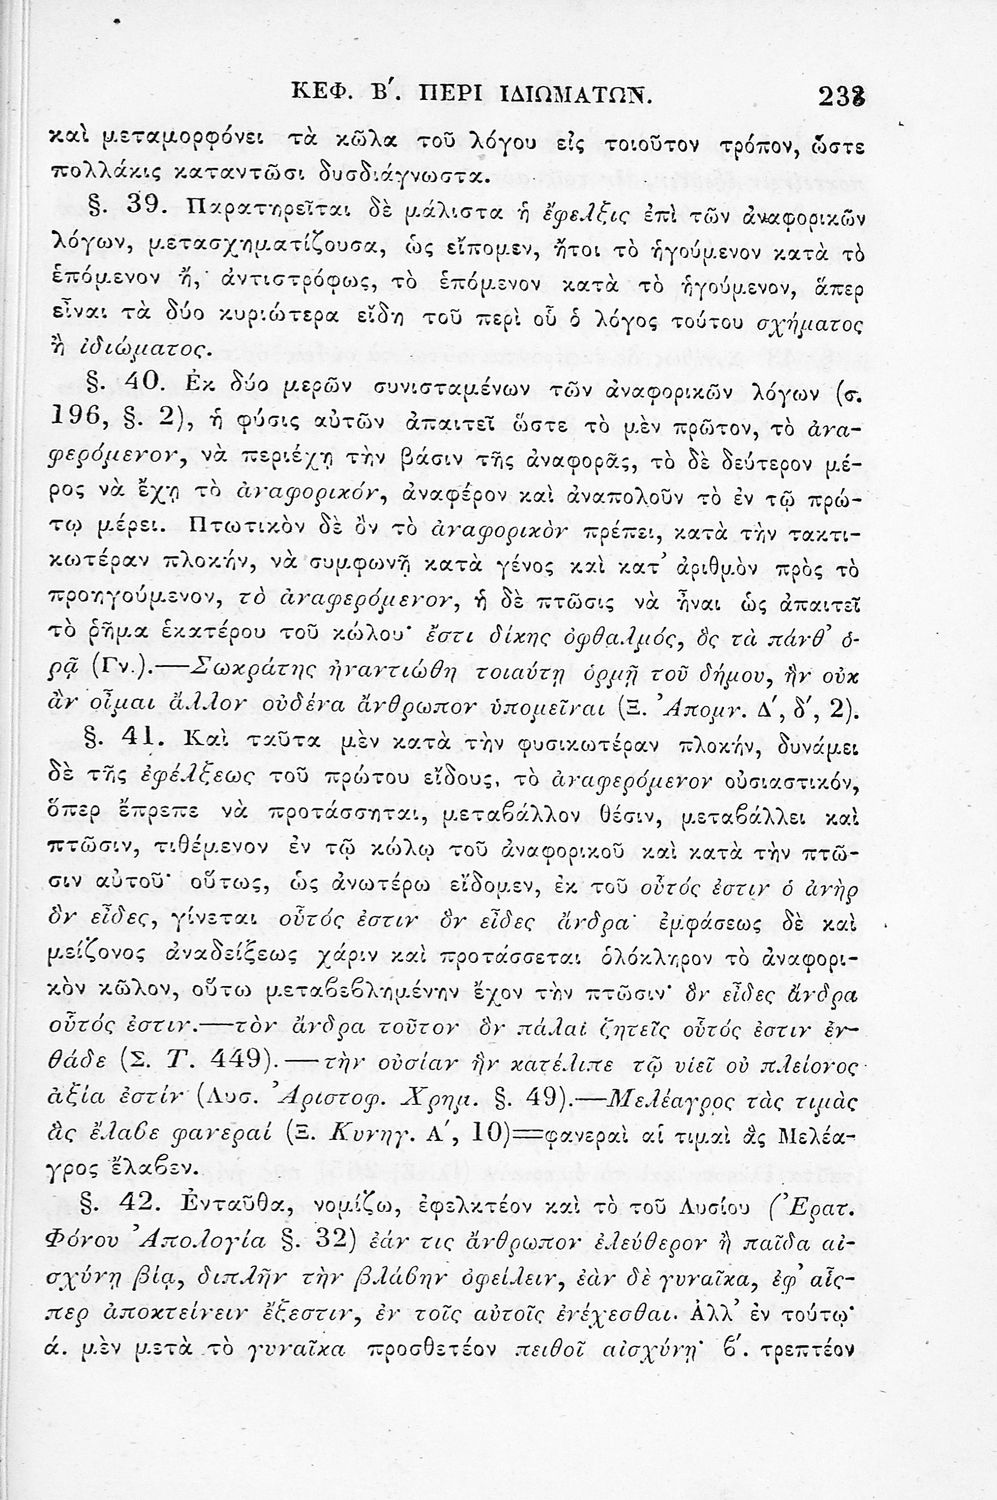 ΚΕΦ. Β΄. ΠΕΡΙ ΙΔΙΩΜΑΤΩΝ.
καὶ μεταμορφόνει τὰ κῶλα τοῦ λόγου εἰς τοιοῦτον τρόπον, ὥστε
πολλάκις καταντῶσι δυσδιάγνωστα.
§. 39. Παρατηρεῖται δὲ μάλιστα ἡ ἔφελξις ἐπὶ τῶν ἀναφορικῶν
λόγων, μετασχηματίζουσα, ὡς εἴπομεν, ἤτοι τὸ ἡγούμενον κατὰ τὸ
ἑπόμενον ἤ, ἀντιστρόφως, τὸ ἑπόμενον κατὰ τὸ ἡγούμενον, ἅπερ
εἶναι τὰ δύο κυριώτερα εἴδη τοῦ περὶ οὗ ὁ λόγος τούτου σχήματος
ἢ ἰδιώματος.
§. 40. Ἐκ δύο μερῶν συνισταμένων τῶν ἀναφορικῶν λόγων (σ.
196, §. 2), ἡ φύσις αὐτῶν ἀπαιτεῖ ὥστε τὸ μὲν πρῶτον, τὸ ἀνα-
φερόμενον, νὰ περιέχῃ τὴν βάσιν τῆς ἀναφορᾶς, τὸ δὲ δεύτερον μέ-
ρος νὰ ἔχῃ τὸ ἀναφορικόν, ἀναφέρον καὶ ἀναπολοῦν τὸ ἐν τῷ πρώ-
τῳ μέρει. Πτωτικὸν δὲ ὂν τὸ ἀναφορικὸν πρέπει, κατὰ τὴν τακτι-
κωτέραν πλοκήν, νὰ συμφωνῇ κατὰ γένος καὶ κατ᾽ ἀριθμὸν πρὸς τὸ
προηγούμενον, τὸ ἀναφερόμενον, ἡ δὲ πτῶσις νὰ ἦναι ὡς ἀπαιτεῖ
τὸ ῥῆμα ἑκατέρου τοῦ κώλου· ἔστι δίκης ὀφθαλμός, ὃς τὰ πάνθ᾽ ὁ-
ρᾷ (Γν.).—Σωκράτης ἠναντιώθη τοιαύτῃ ὁρμῇ τοῦ δήμου, ἣν οὐκ
ἂν οἶμαι ἄλλον οὐδένα ἄνθρωπον ὑπομεῖναι (Ξ. Ἀπομν. Δ΄, δ΄, 2).
§. 41. Καὶ ταῦτα μὲν κατὰ τὴν φυσικωτέραν πλοκήν, δυνάμει
δὲ τῆς ἐφέλξεως τοῦ πρώτου εἴδους, τὸ ἀναφερόμενον οὐσιαστικόν,
ὅπερ ἔπρεπε νὰ προτάσσηται, μεταβάλλον θέσιν, μεταβάλλει καὶ
πτῶσιν, τιθέμενον ἐν τῷ κώλῳ τοῦ ἀναφορικοῦ καὶ κατὰ τὴν πτῶ-
σιν αὐτοῦ· οὕτως, ὡς ἀνωτέρω εἴδομεν, ἐκ τοῦ οὗτός ἐστιν ὁ ἀνὴρ
ὃν εἶδες, γίνεται οὗτός ἐστιν ὃν εἶδες ἄνδρα· ἐμφάσεως δὲ καὶ
μείζονος ἀναδείξεως χάριν καὶ προτάσσεται ὁλόκληρον τὸ ἀναφορι-
κὸν κῶλον, οὕτω μεταβεβλημένην ἔχον τὴν πτῶσιν· ὃν εἶδες ἄνδρα
οὗτός ἐστιν.—τὸν ἄνδρα τοῦτον ὃν πάλαι ζητεῖς οὗτός ἐστιν ἐν-
θάδε (Σ. Τ. 449).—τὴν οὐσίαν ἣν κατέλιπε τῷ υἱεῖ οὐ πλείονος
ἀξία ἐστίν (Λυσ. Ἀριστοφ. Χρημ. §. 49).—Μελέαγρος τὰς τιμὰς
ἃς ἔλαβε φανεραί (Ξ. Κυνηγ. Α΄, 10)=φανεραὶ αἱ τιμαὶ ἃς Μελέα-
γρος ἔλαβεν.
§. 42. Ἐνταῦθα, νομίζω, ἐφελκτέον καὶ τὸ τοῦ Λυσίου (Ἐρατ.
Φόνου Ἀπολογία §. 32) ἐάν τις ἄνθρωπον ἐλεύθερον ἢ παῖδα αἰ-
σχύνῃ βίᾳ, διπλῆν τὴν βλάβην ὀφείλειν, ἐὰν δὲ γυναῖκα, ἐφ᾽ αἷς-
περ ἀποκτείνειν ἔξεστιν, ἐν τοῖς αὐτοῖς ἐνέχεσθαι. Ἀλλ᾽ ἐν τούτῳ·
ά. μὲν μετὰ τὸ γυναῖκα προσθετέον πειθοῖ αἰσχύνῃ· β΄. τρεπτέον